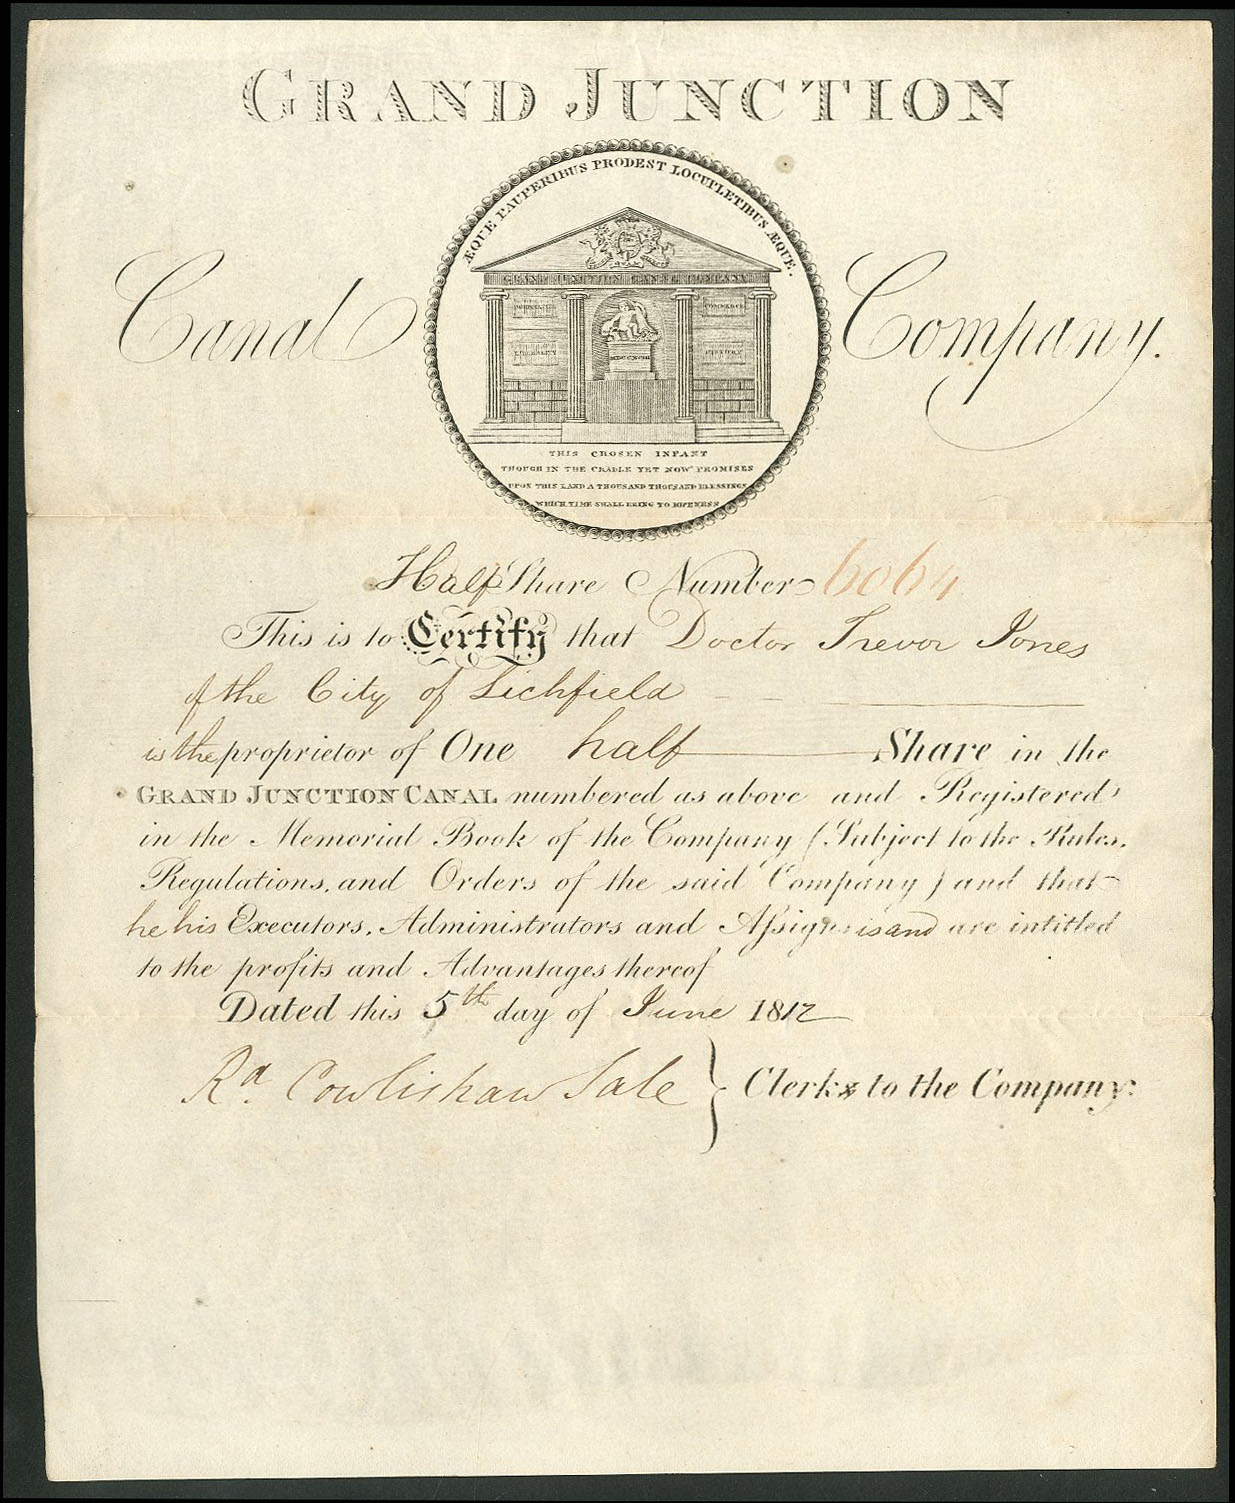 GRAND JUNCTION
Canal Company.
ÆQUE PAUPERIBUS PRODEST LOCUPLETIBUS ÆQUE.
GRAND JUNCTION CANAL COMPANY
COMMERCE
MDCCXCIII
THIS CHOSEN INFANT
THOUGH IN THE CRADLE YET NOW PROMISES
UPON THIS LAND A THOUSAND THOUSAND BLESSINGS
WHICH TIME SHALL BRING TO RIPENESS
Half Share Number 6064
This is to Certify that Doctor Trevor Jones
of the City of Lichfield
is the proprietor of One half Share in the
GRAND JUNCTION CANAL numbered as above and Registered
in the Memorial Book of the Company (Subject to the Rules,
Regulations, and Orders of the said Company) and that
he his Executors, Administrators and Assigns is and are intitled
to the profits and Advantages thereof
Dated this 5th day of June 1812
Rd. Cowlishaw Sale } Clerk to the Company: